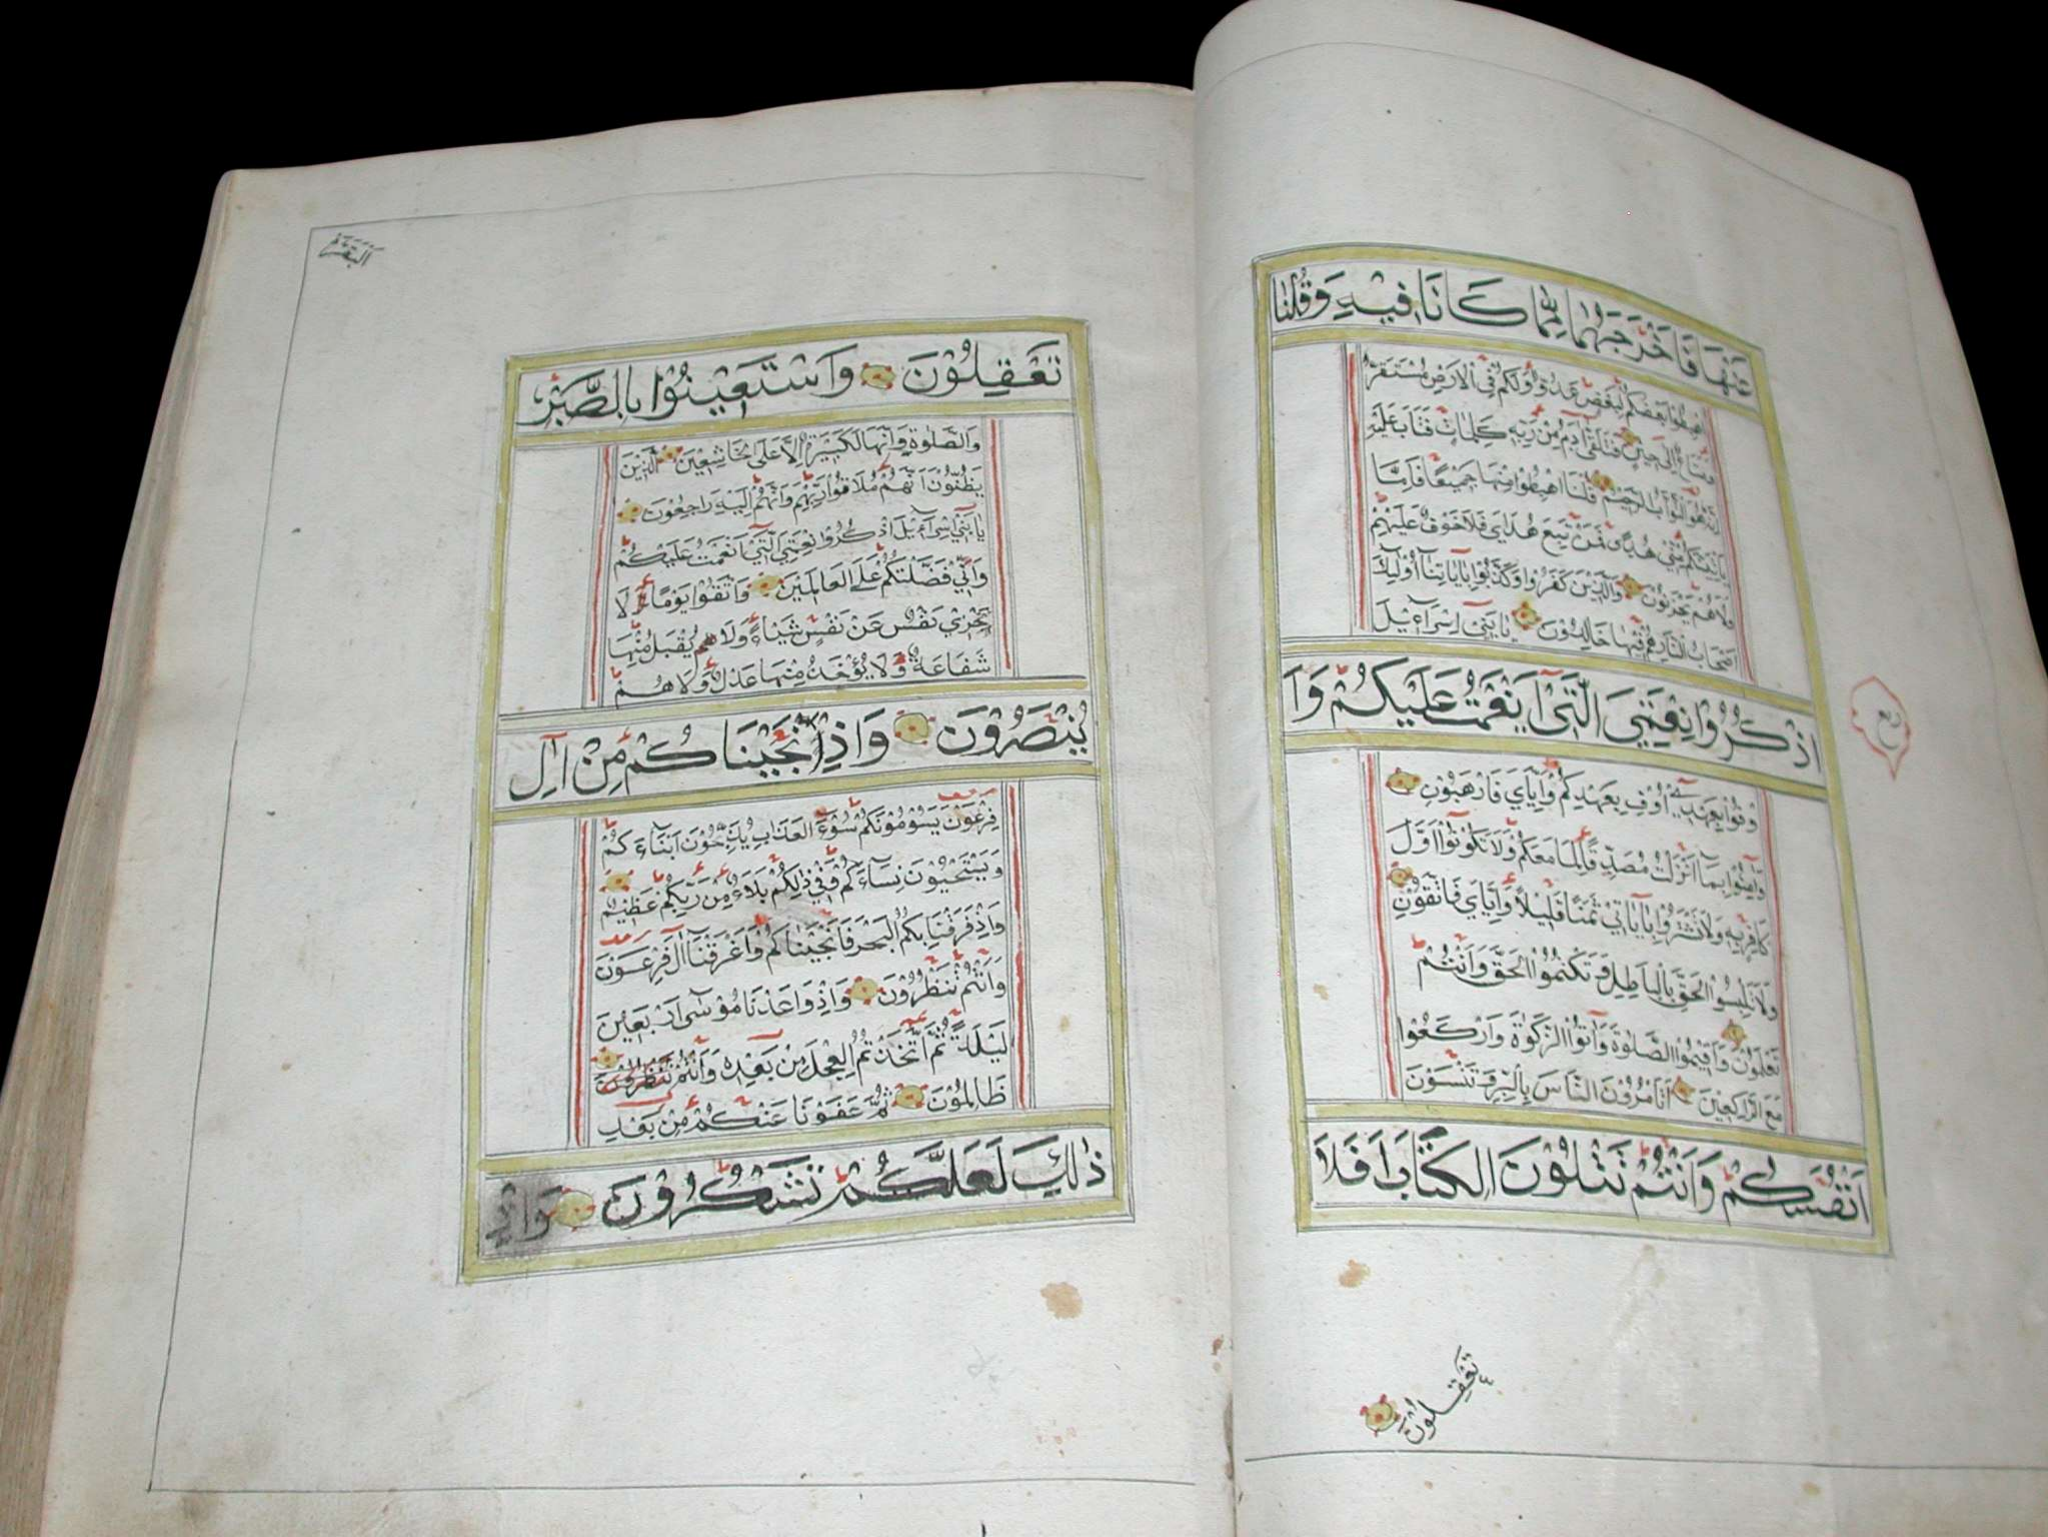 عَنْهَا فَاَخْرَجَهُمَا مِمَّا كَانَا فِيْهِ وَقُلْنَا
اهْبِطُوْا بَعْضُكُمْ لِبَعْضٍ عَدُوٌّ وَلَكُمْ فِي الْاَرْضِ مُسْتَقَرٌّ
وَمَتَاعٌ اِلٰى حِيْنٍ فَتَلَقّٰى آدَمُ مِنْ رَبِّهِ كَلِمَاتٍ فَتَابَ عَلَيْهِ
اِنَّهُ هُوَ التَّوَّابُ الرَّحِيْمُ قُلْنَا اهْبِطُوْا مِنْهَا جَمِيْعًا فَاِمَّا
يَاْتِيَنَّكُمْ مِنِّيْ هُدًى فَمَنْ تَبِعَ هُدَايَ فَلَا خَوْفٌ عَلَيْهِمْ
وَلَا هُمْ يَحْزَنُوْنَ وَالَّذِيْنَ كَفَرُوْا وَكَذَّبُوْا بِاٰيَاتِنَا اُوْلٰئِكَ
اَصْحَابُ النَّارِ هُمْ فِيْهَا خَالِدُوْنَ يَا بَنِيْ اِسْرَآءِيْلَ
اذْكُرُوْا نِعْمَتِيَ الَّتِيْ اَنْعَمْتُ عَلَيْكُمْ وَاَ
ربع
وْفُوْا بِعَهْدِيْ اُوْفِ بِعَهْدِكُمْ وَاِيَّايَ فَارْهَبُوْنِ
وَاٰمِنُوْا بِمَا اَنْزَلْتُ مُصَدِّقًا لِمَا مَعَكُمْ وَلَا تَكُوْنُوْا اَوَّلَ
كَافِرٍ بِهِ وَلَا تَشْتَرُوْا بِاٰيَاتِيْ ثَمَنًا قَلِيْلًا وَاِيَّايَ فَاتَّقُوْنِ
وَلَا تَلْبِسُوا الْحَقَّ بِالْبَاطِلِ وَتَكْتُمُوا الْحَقَّ وَاَنْتُمْ
تَعْلَمُوْنَ وَاَقِيْمُوا الصَّلٰوةَ وَاٰتُوا الزَّكٰوةَ وَارْكَعُوْا
مَعَ الرَّاكِعِيْنَ اَتَاْمُرُوْنَ النَّاسَ بِالْبِرِّ وَتَنْسَوْنَ
اَنْفُسَكُمْ وَاَنْتُمْ تَتْلُوْنَ الْكِتَابَ اَفَلَا
تَعْقِلُوْنَ
اَلْبَقَرَة
تَعْقِلُوْنَ وَاسْتَعِيْنُوْا بِالصَّبْرِ
وَالصَّلٰوةِ وَاِنَّهَا لَكَبِيْرَةٌ اِلَّا عَلَى الْخَاشِعِيْنَ الَّذِيْنَ
يَظُنُّوْنَ اَنَّهُمْ مُلَاقُوْا رَبِّهِمْ وَاَنَّهُمْ اِلَيْهِ رَاجِعُوْنَ
يَا بَنِيْ اِسْرَآءِيْلَ اذْكُرُوْا نِعْمَتِيَ الَّتِيْ اَنْعَمْتُ عَلَيْكُمْ
وَاَنِّيْ فَضَّلْتُكُمْ عَلَى الْعَالَمِيْنَ وَاتَّقُوْا يَوْمًا لَا
تَجْزِيْ نَفْسٌ عَنْ نَفْسٍ شَيْاءً وَلَا يُقْبَلُ مِنْهَا
شَفَاعَةٌ وَلَا يُؤْخَذُ مِنْهَا عَدْلٌ وَلَا هُمْ
يُنْصَرُوْنَ وَاِذْ اَنْجَيْنَاكُمْ مِنْ اٰلِ
فِرْعَوْنَ يَسُوْمُوْنَكُمْ سُوْءَ الْعَذَابِ يُذَبِّحُوْنَ اَبْنَاءَكُمْ
وَيَسْتَحْيُوْنَ نِسَآءَكُمْ وَفِيْ ذٰلِكُمْ بَلَاءٌ مِنْ رَبِّكُمْ عَظِيْمٌ
وَاِذْ فَرَقْنَا بِكُمُ الْبَحْرَ فَاَنْجَيْنَاكُمْ وَاَغْرَقْنَا آلَ فِرْعَوْنَ
وَاَنْتُمْ تَنْظُرُوْنَ وَاِذْ وَاعَدْنَا مُوْسٰى اَرْبَعِيْنَ
لَيْلَةً ثُمَّ اتَّخَذْتُمُ الْعِجْلَ مِنْ بَعْدِهِ وَاَنْتُمْ تَنْظُرُوْنَ
ظَالِمُوْنَ ثُمَّ عَفَوْنَا عَنْكُمْ مِنْ بَعْدِ
ذٰلِكَ لَعَلَّكُمْ تَشْكُرُوْنَ وَاِذْ